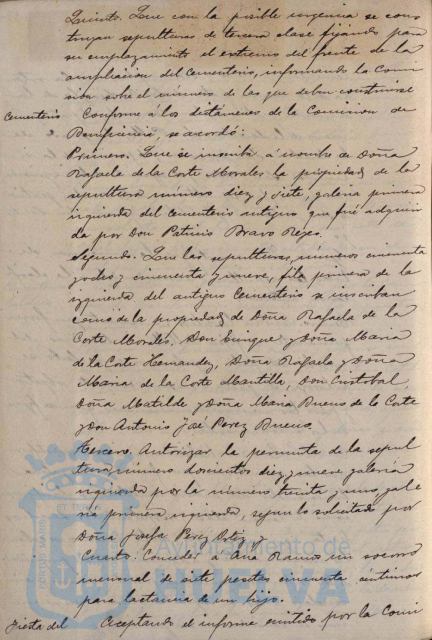 Quinto. Que con la posible urgencia se cons
truyan sepulturas de tercera clase fijando para
su emplazamiento el extremo del frente de la
ampliación del Cementerio, informando la Comi
sión sobre el número de las que deban construirse
Cementerio Conforme á los dictámenes de la Comision de
Beneficencia, se acordó:
Primero. Que se inscriba á nombre de Doña
Rafaela de la Corte Morales la propiedad de la
sepultura número diez y siete, galeria primera
izquierda del cementerio antiguo que fué adquiri
da por Don Patricio Bravo Reyes.
Segundo. Que las sepulturas, números cincuenta
y ocho y cincuenta y nueve, fila primera de la
izquierda del antiguo Cementerio se inscriban
como de la propiedad de Doña Rafaela de la
Corte Morales, Don Enrique y Doña Maria
de la Corte Hernandez, Doña Rafaela y Doña
Maria de la Corte Mantilla, Don Cristobal,
Doña Matilde y Doña Maria Bueno de la Corte
y Don Antonio José Perez Bueno.
Tercero. Autorizar la permuta de la sepul
tura número doscientos diez y nueve galería
izquierda por la número treinta y uno, gale
ria primera izquierda, segun lo solicitado por
Doña Josefa Perez Ortiz y
Cuarto. Conceder á Ana Ramos un socorro
mensual de siete pesetas cincuenta céntimos
para lactancia de un hijo.
Fiesta del Aceptando el informe emitido por la Comi
Ayuntamiento de
HUELVA